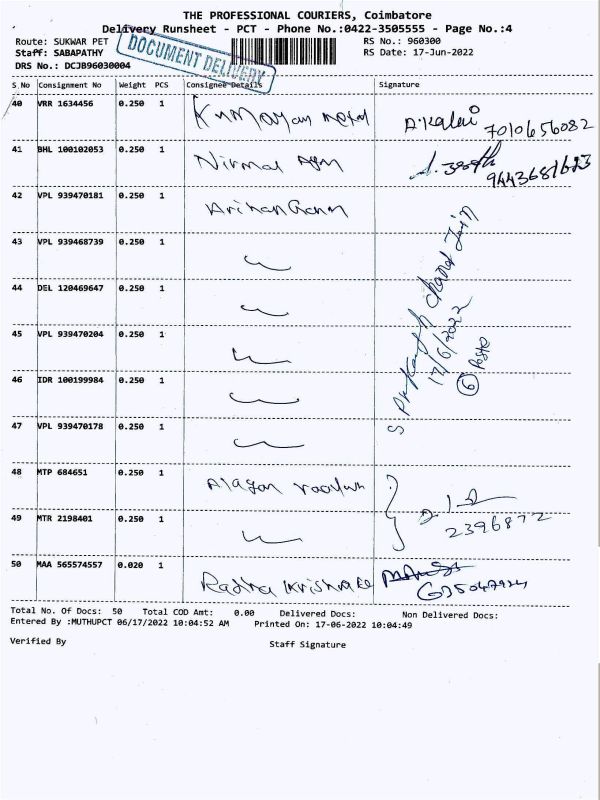 THE PROFESSIONAL COURIERS, Coimbatore
Delivery Runsheet - PCT - Phone No.:0422-3505555 - Page No.:4
Route: SUKWAR PET RS No.: 960300
Staff: SABAPATHY RS Date: 17-Jun-2022
DRS No.: DCJB96030004
DOCUMENT DELIVERY
S.No Consignment No Weight PCS Consignee Details Signature
40 VRR 1634456 0.250 1 7010656082
41 BHL 100102053 0.250 1 Nirmal
42 VPL 939470181 0.250 1
43 VPL 939468739 0.250 1
44 DEL 120469647 0.250 1
45 VPL 939470204 0.250 1
46 IDR 100199984 0.250 1
47 VPL 939470178 0.250 1
S Prakash Chand Jain
17/6/2022
6
48 MTP 684651 0.250 1
49 MTR 2198401 0.250 1 2396872
50 MAA 565574557 0.020 1 Radha
Total No. Of Docs: 50 Total COD Amt: 0.00 Delivered Docs: Non Delivered Docs:
Entered By :MUTHUPCT 06/17/2022 10:04:52 AM Printed On: 17-06-2022 10:04:49
Verified By Staff Signature